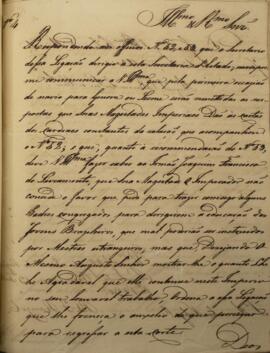 Illmo e Rmo Senr
Respondendo aos officios Nº 52, e 53, que o Secretario
dessa Legação dirigio a esta Secretaria d'Estado, cumpre-
me communicar a V. Illma, que pela primeira occasião
de navio para Genova ou Liorne serão remettidas as res-
postas que Suas Magestades Imperiaes Dão ás cartas
dos Cardeaes constantes da relação que acompanhou
o Nº 52; e que, quanto á recommendação do Nº 53,
deve V. Illma fazer saber ao Irmão Joaquim Francisco
do Livramento, que Sua Magestade o Imperador não
concede o favor que pede para trazer comsigo alguns
Padres congregados para dirigirem a educação dos
Jovens Brasileiros, que mal poderião ser instruidos
por Mestres estrangeiros, mas que Desejando O
Mesmo Augusto Senhor mostrar-lhe o quanto Lhe
he Agradavel que elle continue neste Imperio
no seu louvavel trabalho, Ordena a essa Legação
que lhe forneça o auxilio de que precisar
para regressar a esta Corte.
Deos